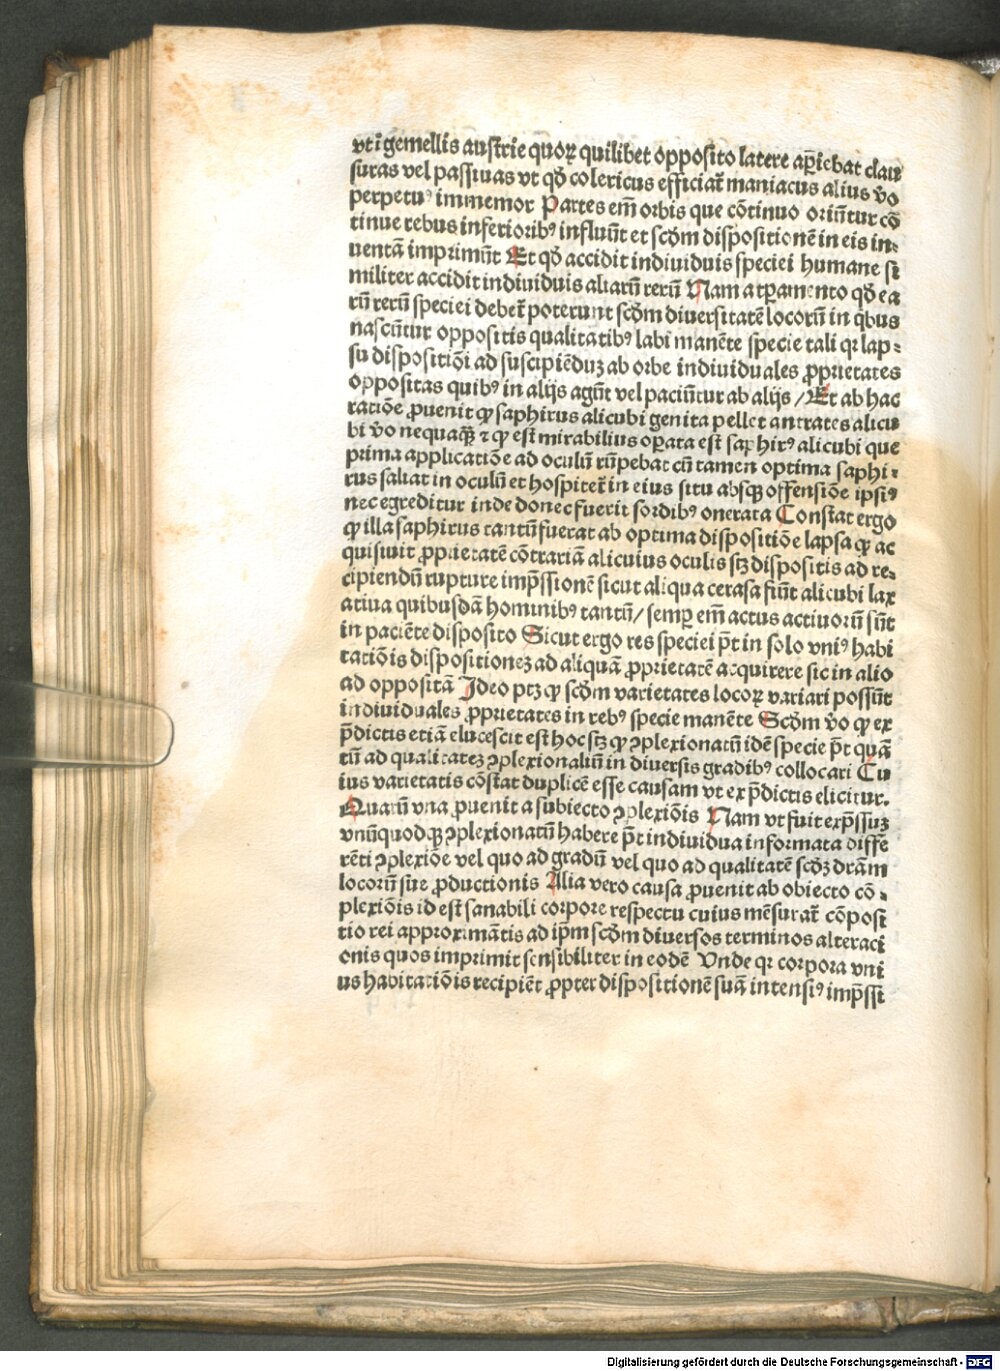 vt ī gemellis austrie quoꝝ quilibet opposito latere aꝑiebat clau
suras vel passiuas vt qđ colericus efficiat̃ maniacus alius v̄o
perpetuꝰ immemor Partes em̄ orbis que cōtinuo oriūtur cō
tinue rebus inferioribꝰ influūt et scđm dispositionē in eis in⸗
uentā imprimūt Et qđ accidit indiuiduis speciei humane si
militer accidit indiuiduis aliarū rerū Nam a tꝑamento qđ ea
rū rerū speciei debet̃ poterunt scđm diuersitatē locorū in qͥbus
nascūtur oppositis qualitatibꝰ labi manēte specie tali qꝛ lap⸗
su dispositiōi ad suscipiēduꝫ ab orbe indiuiduales ꝓprietates
oppositas quibꝰ in alijs agūt vel paciūtur ab alijs / Et ab hac
ratiōe ꝓuenit ꝙ saphirus alicubi genita pellet antrates alicu
bi v̄o nequaqꝫ̄ ⁊ ꝙ est mirabilius oꝑata est saphirꝰ alicubi que
prima applicatiōe ad oculū rūpebat cū tamen optima saphi⸗
rus saliat in oculū et hospitet̃ in eius situ absqꝫ offensiōe ipsiꝰ
nec egreditur inde donec fuerit sordibꝰ onerata Constat ergo
ꝙ illa saphirus tantū fuerat ab optima dispositiōe lapsa ꝙ ac
quisiuit ꝓprietatē cōtrariā alicuius oculis stꝫ dispositis ad re⸗
cipiendū rupture imp̄ssionē sicut aliqua cerasa fiūt alicubi lax
atiua quibusdā hominibꝰ tantū / semꝑ em̄ actus actiuorū sūt
in paciēte disposito Sicut ergo res speciei p̄t in solo vniꝰ habi
tatiōis dispositioneꝫ ad aliquā ꝓprietatē acquirere sic in alio
ad oppositā Ideo ptꝫ ꝙ scđm varietates locoꝝ variari possūt
indiuiduales ꝓprietates in rebꝰ specie manēte Scđm v̄o ꝙ ex
p̄dictis etiā elucescit est hoc stꝫ ꝙ ꝯplexionatū idē specie p̄t quā
tū ad qualitateꝫ ꝯplexionaliū in diuersis gradibꝰ collocari Cu
ius varietatis cōstat duplicē esse causam vt ex p̄dictis elicitur.
Quarū vna ꝓuenit a subiecto ꝯplexiōis Nam vt fuit exp̄ssuꝫ
vnūquodqꝫ ꝯplexionatū habere p̄t indiuidua informata diffe
rēti ꝯplexiōe vel quo ad gradū vel quo ad qualitatē scđꝫ dr̄am
locorū sue ꝓductionis Alia vero causa ꝓuenit ab obiecto cō⸗
plexiōis id est sanabili corpore respectu cuius mēsurat̃ cōposi
tio rei approximātis ad ip̄m scđm diuersos terminos alteraci
onis quos imprimit sensibiliter in eodē Vnde qꝛ corpora vni
us habitatiōis recipiēt ꝓpter dispositionē suā intensiꝰ imp̄ssi
Digitalisierung gefördert durch die Deutsche Forschungsgemeinschaft - DFG